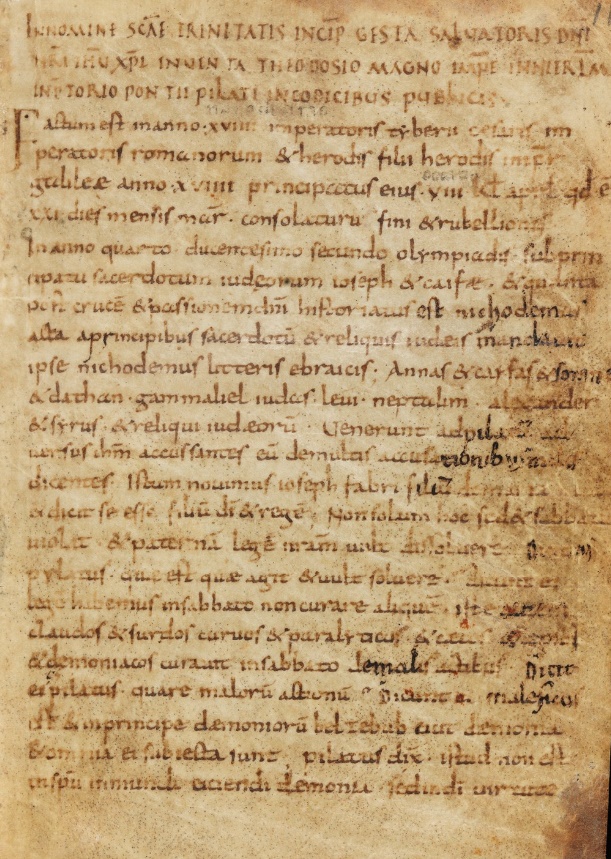 IN NOMINE SCAE TRINITATIS INCIP GESTA SALVATORIS DNI
NRI IHU XPI INVENTA THEODOSIO MAGNO IMPE IN HIERLM
IN PTORIO PONTII PILATI IN CODICIBUS PUBLICIS
Factum est in anno xviiii imperatoris tyberii cesaris im
peratoris romanorum & herodis filii herodis
galileae anno xviiii principatus eius viii kl april qd ē
xxi dies mensis mar consolatu rufini & rubellionis
In anno quarto ducentesimo secundo olympiadis sub prin
cipatu sacerdotum iudeorum ioseph & caifae &
post crucē & passionem dni historiatus est nichodemus
acta a principibus sacerdotū & reliquis iudeis mandavit
ipse nichodemus litteris ebraicis Annas & caifas &
& dathan gammaliel iudas levi neptalim alexander
& syrus & reliqui iudeorū Venerunt ad pilatū ad
versus ihm accussantes eū de multis accusationibus
dicentes Istum novimus ioseph fabri filiū de maria
& dicit se esse filiū di & regē Non solum hoc sed & sabbata
violat & paternā legē nram vult dissolvere Dicit
pylatus quae est quae agit & vult solvere dicunt ei
lege habemus in sabbato non curare aliquē iste autem
claudos & surdos curvos & paralyticos & cecos
& demoniacos curavit in sabbato de malis actibus Dicit
ei pilatus quare malorū actionū Dicunt ei maleficus
est & in principe daemoniorū belzebub eicit daemonia
& omnia ei subiecta sunt pilatus dix istud non est
in spū inmundi eiciendi demonia sed in di virtute